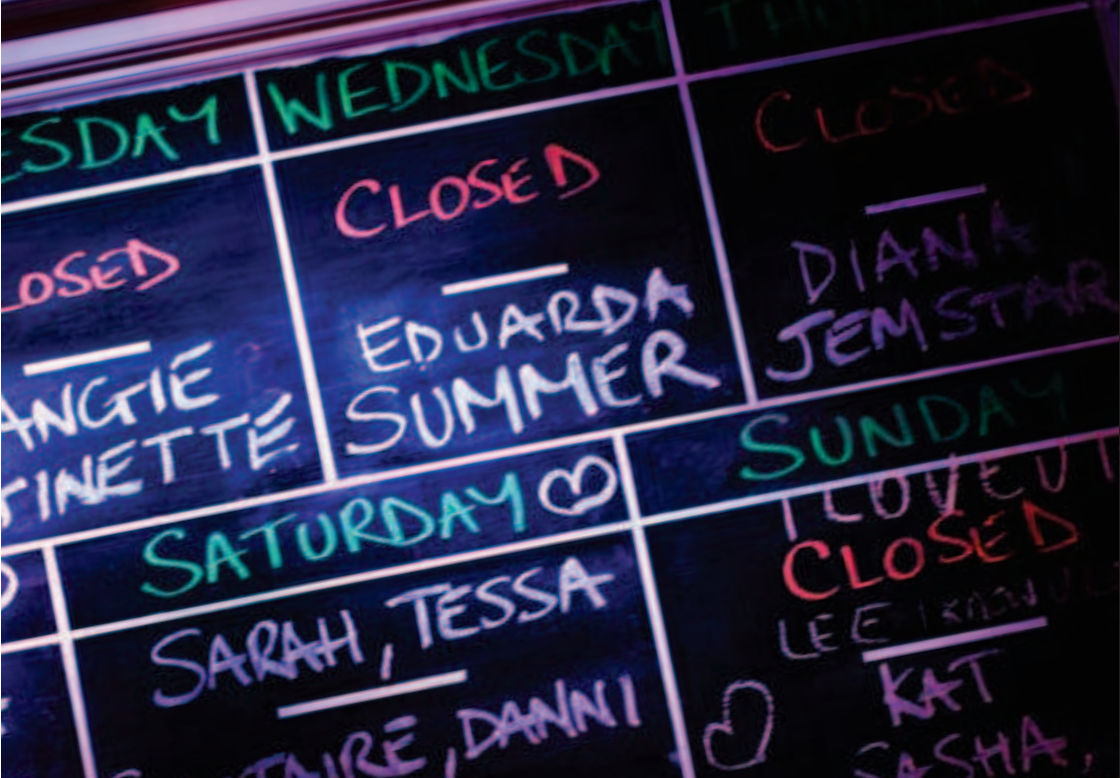 ESDAY
LOSED
ANGIE
TINETTE
WEDNESDAY
CLOSED
EDUARDA
SUMMER
CLOSED
DIANA
JEMSTAR
SATURDAY
SARAH, TESSA
TAIRE, DANNI
SUNDAY
I LOVE U
CLOSED
LEE
KAT
SASHA,